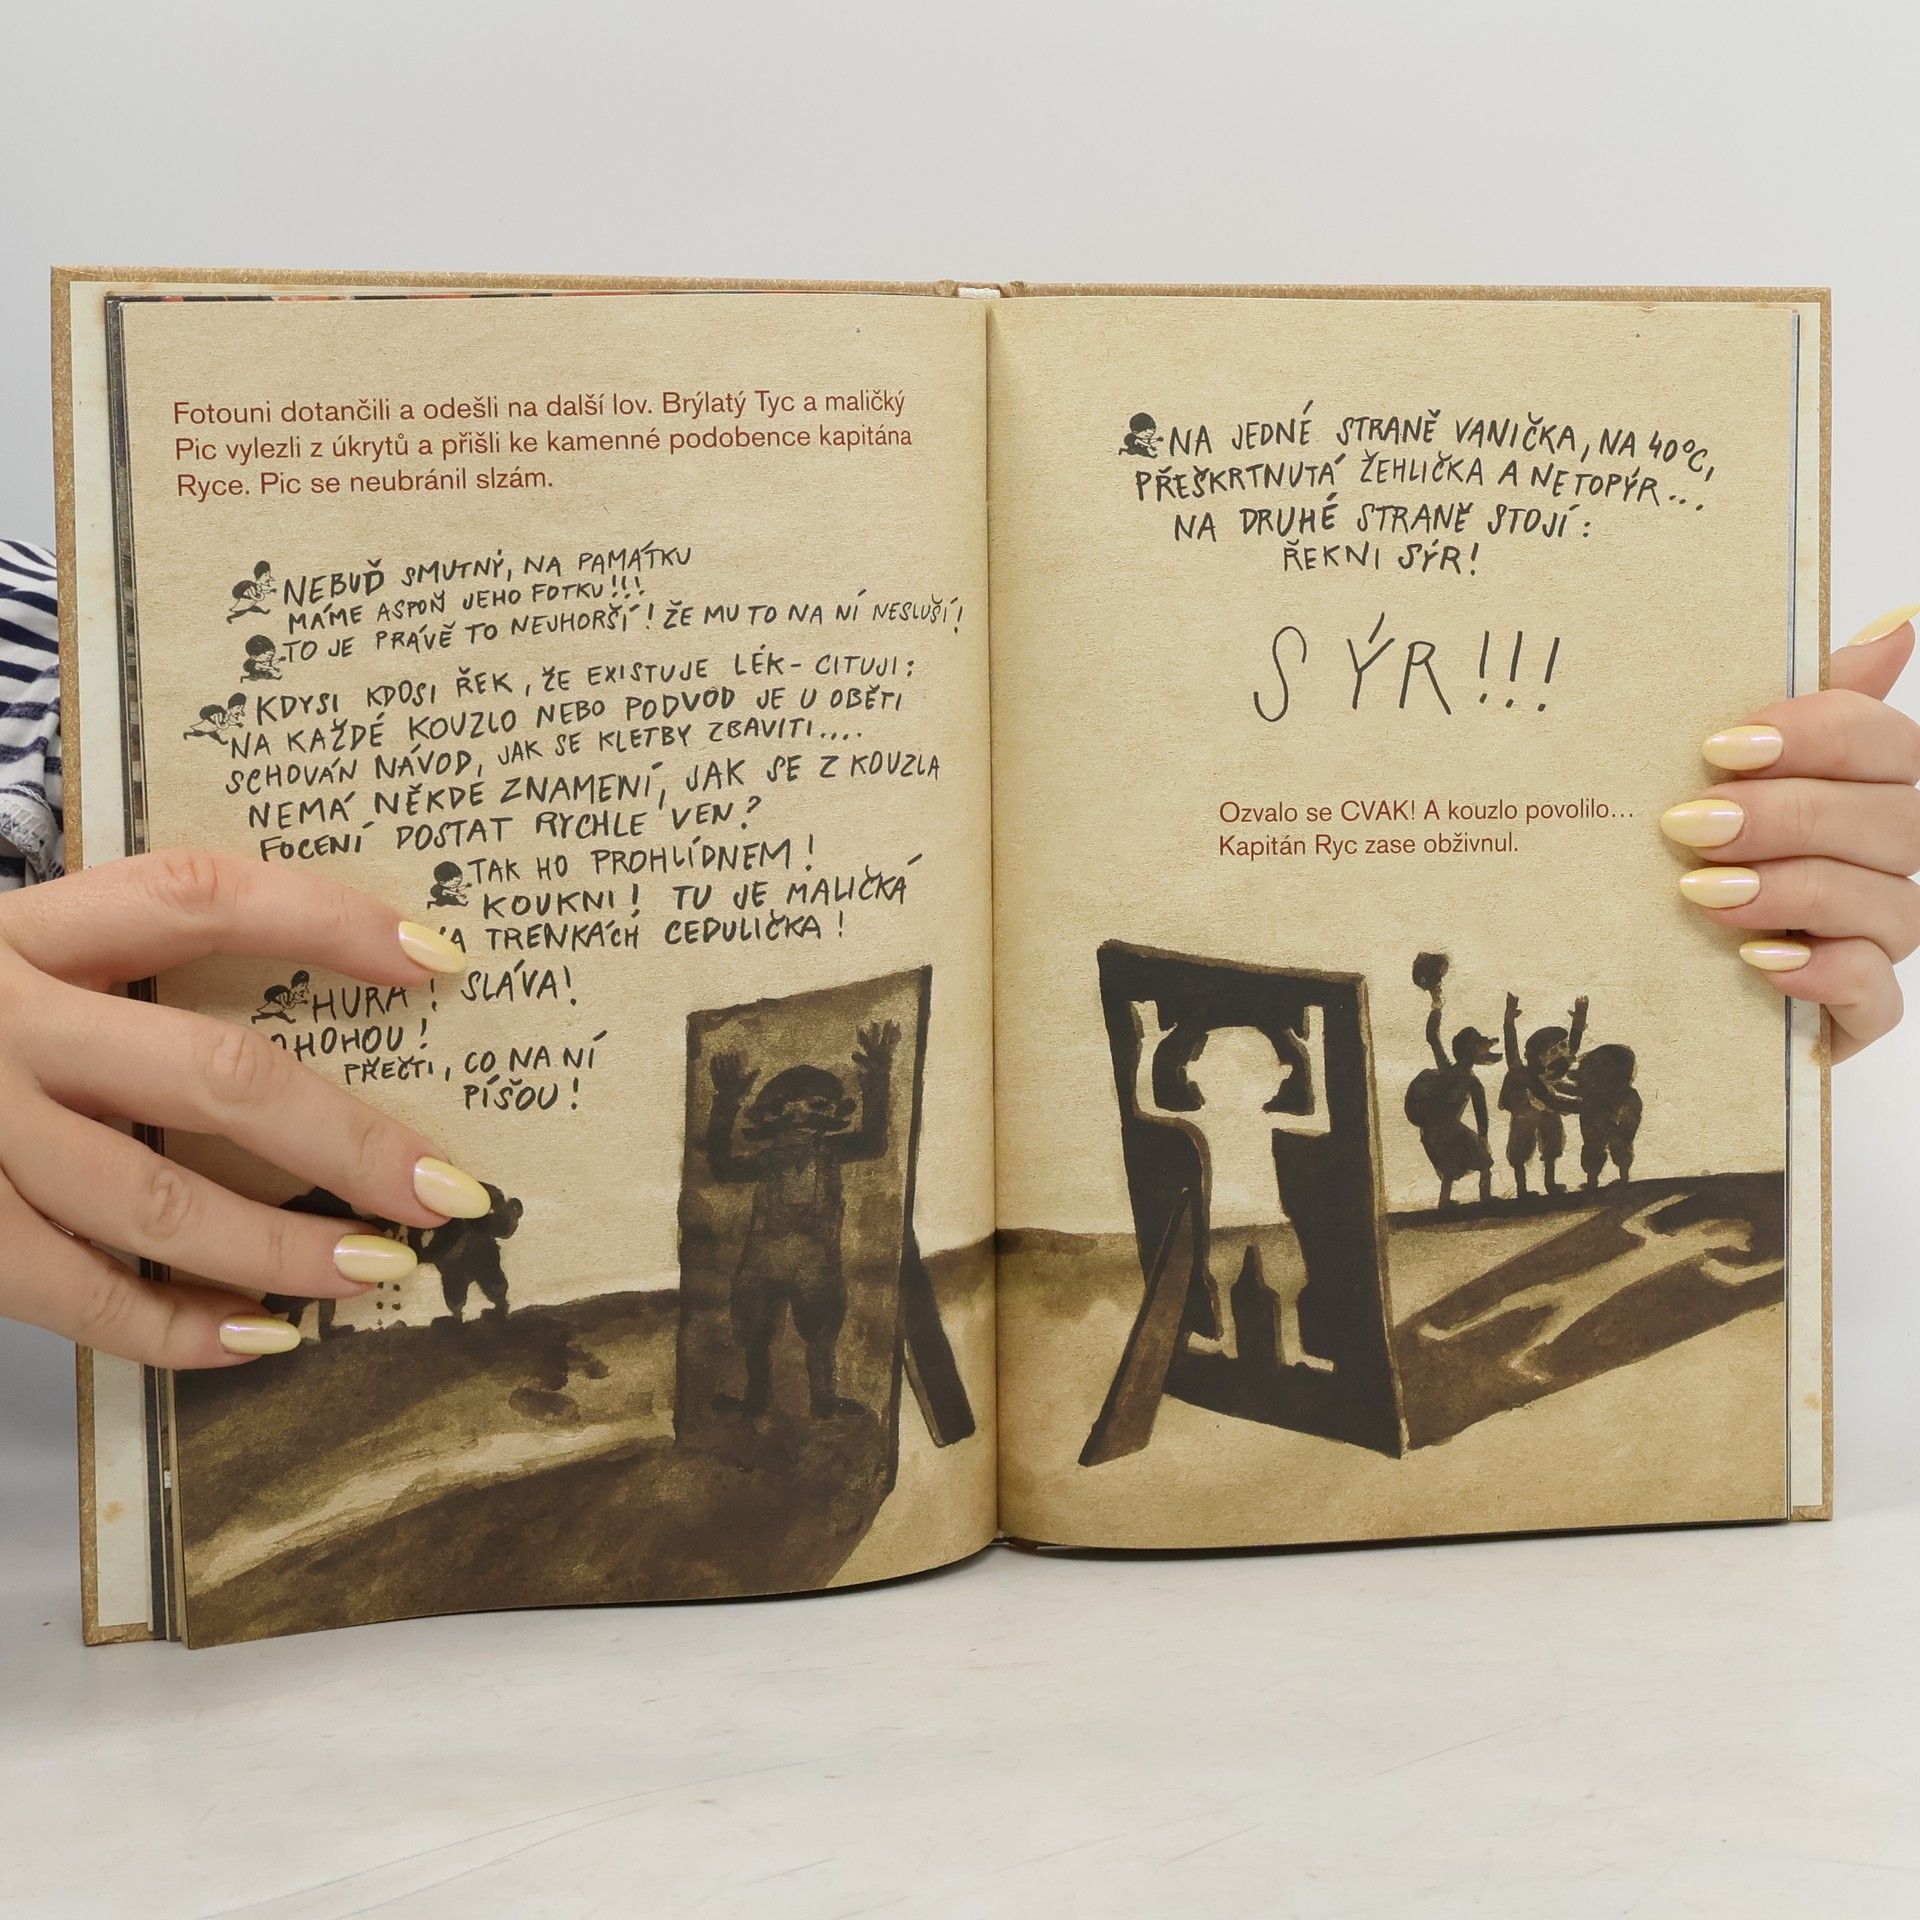 Fotouni dotančili a odešli na další lov. Brýlatý Tyc a maličký
Pic vylezli z úkrytů a přišli ke kamenné podobence kapitána
Ryce. Pic se neubránil slzám.
NEBUĎ SMUTNÝ, NA PAMÁTKU
MÁME ASPOŇ JEHO FOTKU!!!
TO JE PRÁVĚ TO NEJHORŠÍ! ŽE MU TO NA NÍ NESLUŠÍ!
KDYSI KDOSI ŘEK, ŽE EXISTUJE LÉK - CITUJI:
NA KAŽDÉ KOUZLO NEBO PODVOD JE U OBĚTI
SCHOVÁN NÁVOD, JAK SE KLETBY ZBAVITI....
NEMÁ NĚKDE ZNAMENÍ, JAK SE Z KOUZLA
FOCENÍ DOSTAT RYCHLE VEN?
TAK HO PROHLÍDNEM!
KOUKNI! TU JE MALIČKÁ
TRENKÁCH CEDULIČKA!
HURÁ! SLÁVA!
PŘEČTI, CO NA NÍ
PÍŠOU!
NA JEDNÉ STRANĚ VANIČKA, NA 40°C,
PŘEŠKRTNUTÁ ŽEHLIČKA A NETOPÝR...
NA DRUHÉ STRANĚ STOJÍ:
ŘEKNI SÝR!
SÝR!!!
Ozvalo se CVAK! A kouzlo povolilo...
Kapitán Ryc zase obživnul.